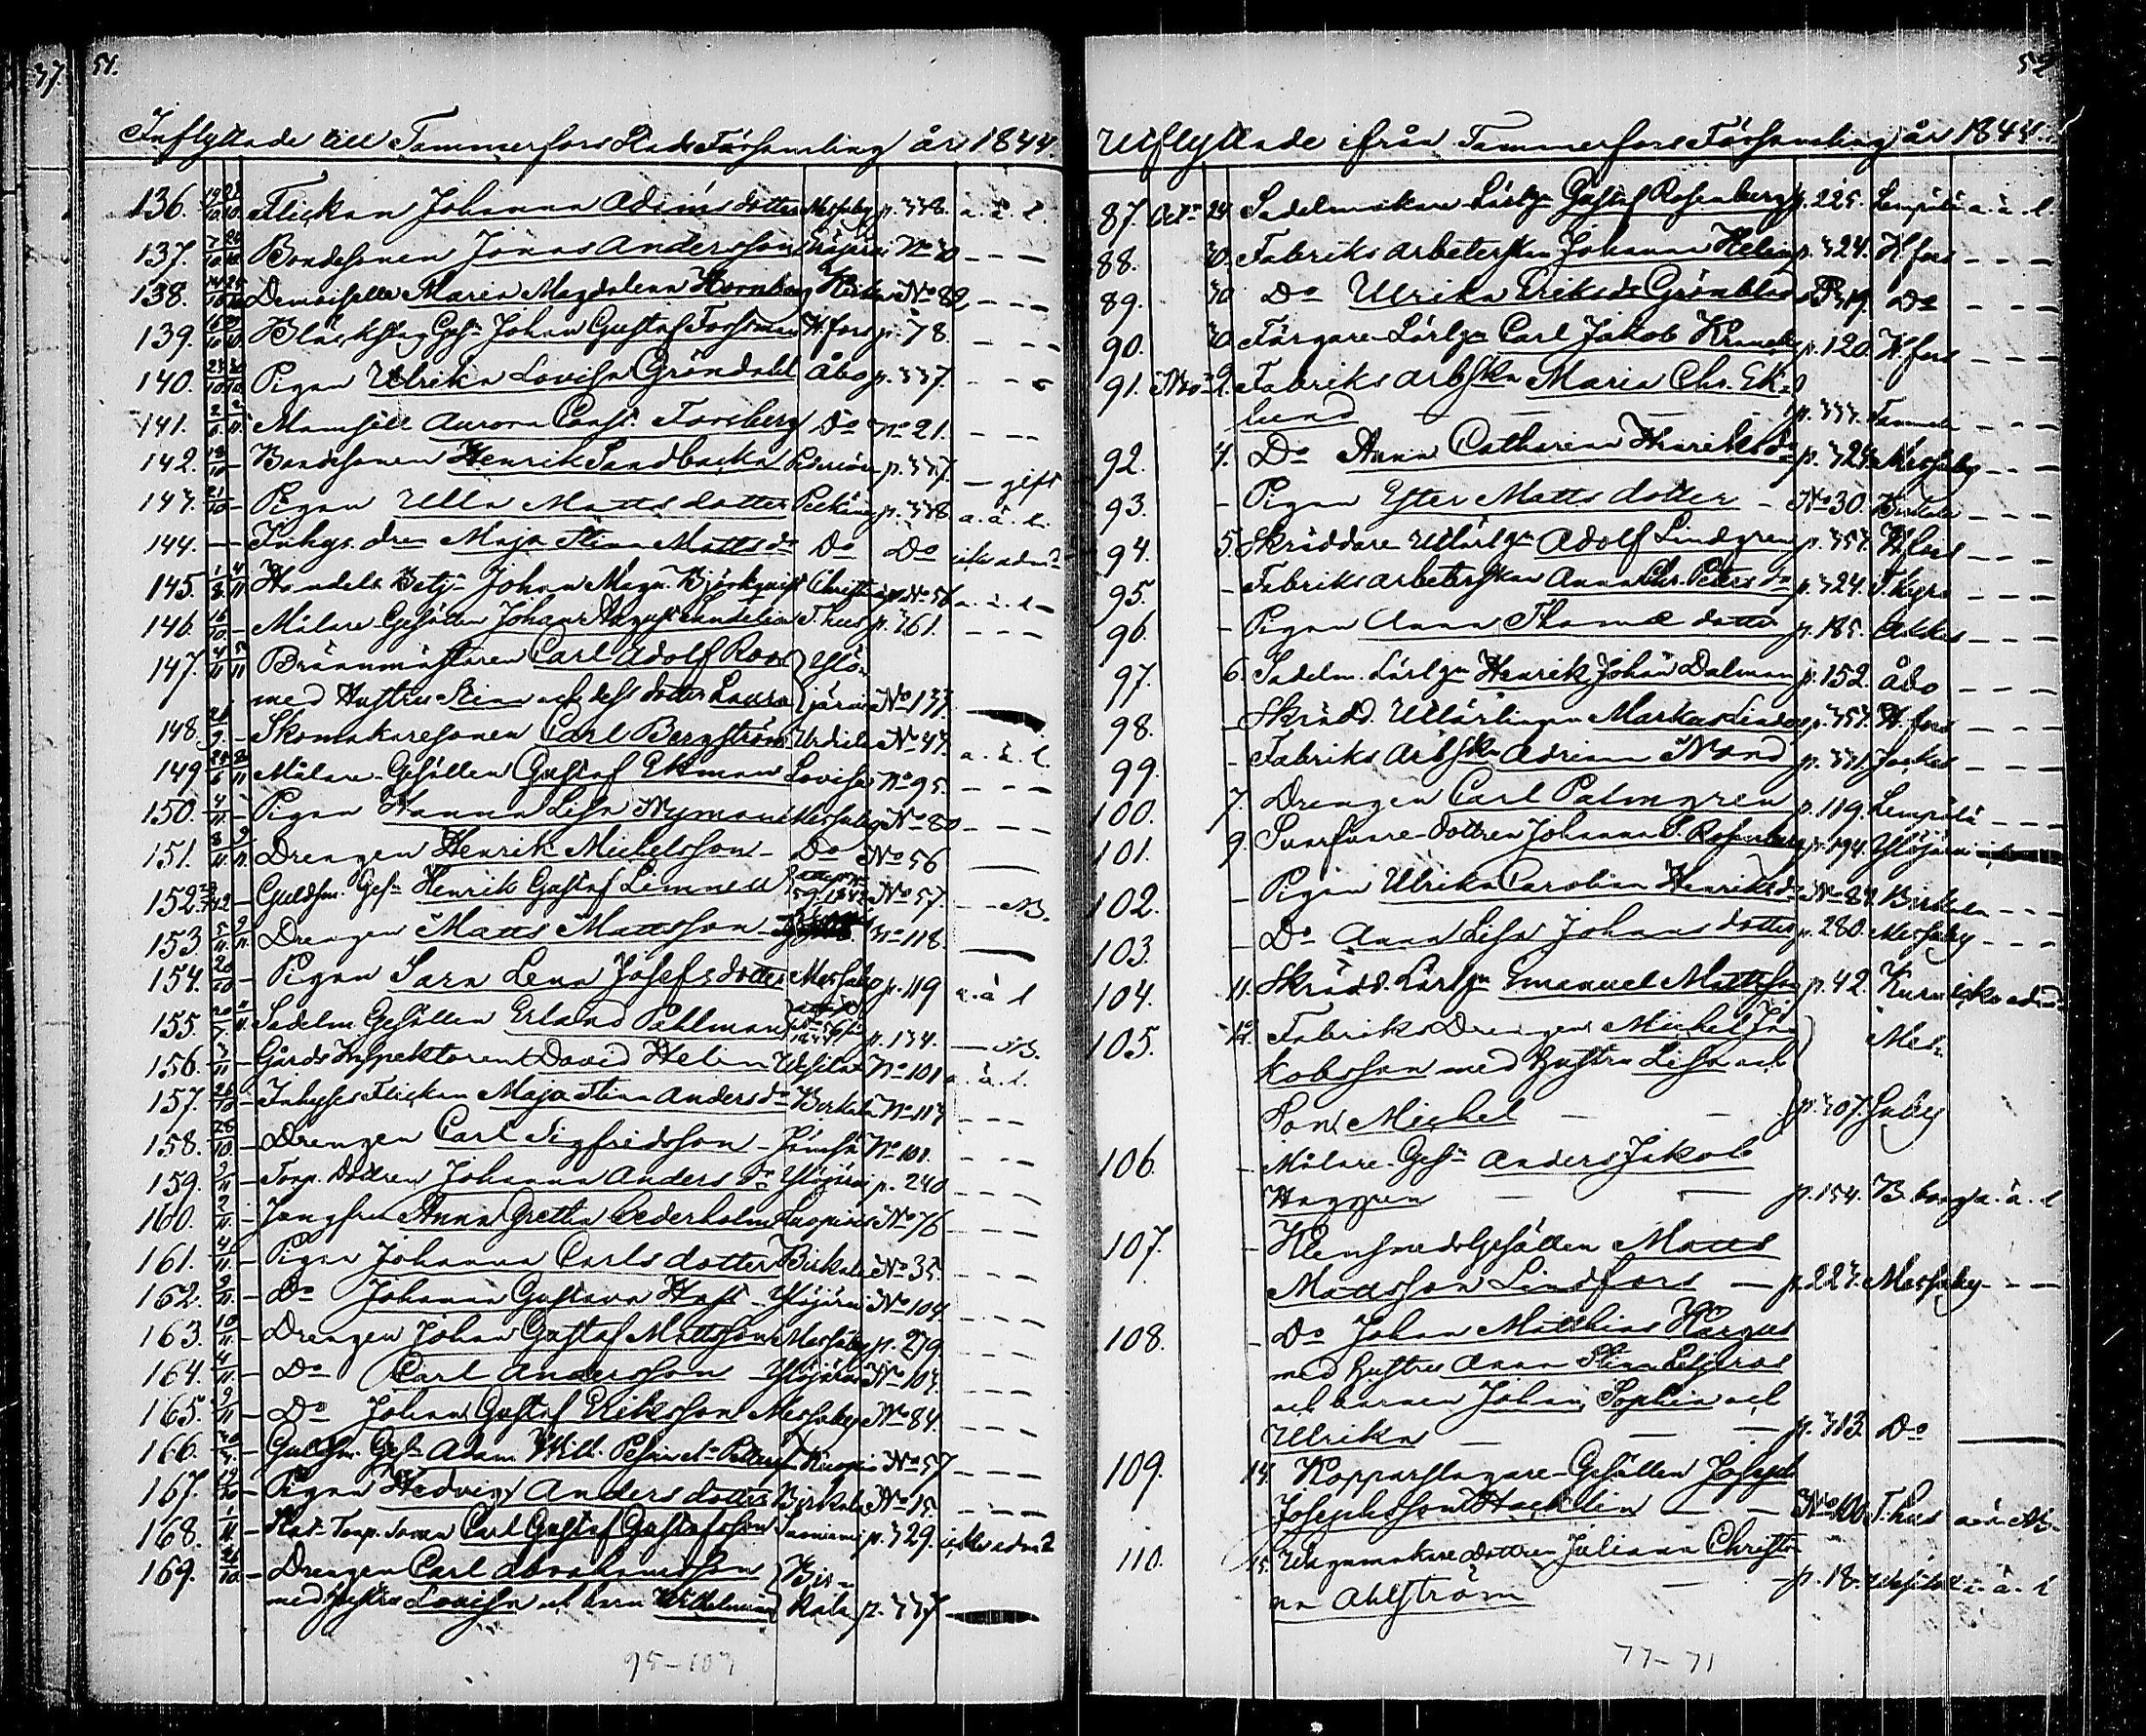 37.
51.
Inflyttade till Tammerfors Stads Församling år 1844.
136. 19/10 22/10 Flickan Johanna Adams dotter Messuby p. 338. a. ä. l.
137. 7/10 24/10 Bondesonen Jonas Andersson No 30 - - -
138. 14/10 25/10 Demoiselle Maria Magdalena Hornborg No 82 - - -
139. 16/10 Gesn Johan Gustaf Forssman H.fors p. 78. - - -
140. 23/10 30/10 Pigan Ulrika Lovisa Gröndahl Åbo p. 337. - - -
141. Mamsell Aurora Const. Forsberg Do No 21. - - -
142. 18/10 - Bondesonen Henrik Sandbacka p. 337. - gift
143. 21/10 - Pigan Ulla Matts dotter Pelkäne p. 338. a. ä. l.
144. - Inhys. dren Maja Stina Matts do Do Do icke adm.
145. Handels Betj. Johan Magn. Björkqvist No 56 a. ä. l.
146. 16/10 - Målare Gesällen Johan August Sandelin T.hus p. 161. - - -
147. 4/11 5/11 Brännmästaren Carl Adolf Roos Ylö-
med Hustru Stina och dess dotter Laura järvi No 133.
148. - Skomakaresonen Carl Bergström Urdiala No 47. a. ä. l.
149 Målare-Gesällen Gustaf Ekman Lovisa No 95. - - -
150. 4/11 - Pigan Hanna Lisa Nyman Messuby No 80 - - -
151. 8/11 9/11 Drengen Henrik Michelsson - Do No 56
152. Guldsm. Gesn Henrik Gustaf Limnell No 57. - NB.
153. 5/11 9/11 Drengen Matts Mattsson No 118.
154. 20/10 - Pigan Sara Lena Josefsdotter Messuby p. 119 a. ä l
155. Sadelm. Gesällen Erland Pahlman p. 134. - NB.
156. 3/11 - Gårds Inspektoren David Helin No 101 a. ä. l.
157. 26/10 - Inhyses Flickan Maja Stina Anders do Birkala No 117 - - -
158. 28/10 - Drengen Carl Sigfridsson - Jämsä No 101. - - -
159. 9/11 - Torp. Dottren Johanna Anders do Ylöjärvi p. 240 - - -
160. 2/11 - Jungfru Anna Gretha Cederholm No 76 - - -
161. 4/11 - Pigan Johanna Carls dotter Birkala No 35. - - -
162. 9/11 - Do Johanna Gustava Hast - Ylöjärvi No 104. - - -
163. 10/11 - Drengen Johan Gustaf Mattsson Messuby p. 279 - - -
164. 4/11 - Do Carl Andersson - Ylöjärvi No 107. - - -
165. 9/11 - Do Johan Gustaf Eriksson Messuby No 84. - - -
166. Guldsm. Gesn Adam Wilh. Kuopio No 57 - - -
167. - Pigan Hedvig Anders dotter Birkala No 15. - - -
168. 1/11 - Torp. Sonen Carl Gustaf Gustafsson p. 329. icke adm.
169. 26/10 - Drengen Carl Abrahamsson Bir-
med hustru Lovisa och barn Wilhelmina kala p. 337
95-103
52
Utflyttade ifrån Tammerfors Församling år 1844.
87. Octr 24. Sadelmakare Lärlgn Gustaf Rosenberg p. 225. Lempälä a. ä. l.
88. 30. Fabriks arbeterskan Johanna Helin p. 324. H.fors - - -
89. 30 Do Ulrika Eriksdr Grönblad p. 319. Do - - -
90. 30. Färgare-Lärlgn Carl Jakob p. 120. H.fors - - -
91. 2. Fabriks arbskn Maria Chr. Ek-
lund - - - p. 333. Tammela - - -
92. 4. Do Anna Catharina Henriksdr p. 324. Messuby - - -
93. - Pigan Ester Matts dotter - No 30. Birkala - - -
94. 5. Skräddare Utlärlgn Adolf Lindgren p. 357. H.fors - - -
95. - Fabriks arbeterskan Anna Chr. Petersdr p. 324. T.kyro - - -
96. - Pigan Anna Thomæ dotter p. 185. - - -
97. 6. Sadelm. Lärlgn Henrik Johan Dalman p. 152. Åbo - - -
98. - Skrädd. Utlärlingen Markus p. 357. H.fors - - -
99. - Fabriks arbskn Adriana Strand p. 331. Jockas - - -
100. 7. Drengen Carl Palmgren p. 119. Lempälä - - -
101. 9. Svarfvare-dottren Johanna S. Rosenberg p. 194. Ylöjärvi
102. - Pigan Ulrika Carolina Henriksdr No 84. Birkala - - -
103. - Do Anna Lisa Johans dotter p. 280. Messuby - - -
104. 11. Skrädd. Lärlgn Emanuel Mattsson p. 42. Kuru icke adm.
105. 12. Fabriks Drengen Michel Ja-
kobsson med hustru Lisa och Mes-
Son Michel - - p. 307. suby
106. - Målare-Gesn Anders Jakob
Haggren - - p. 154. B.borg a. ä. l
107. - Klensmeds Gesällen Matts
Mattsson Lindfors - p. 227. Messuby - - -
108. - Do Johan Matthias
med hustru Anna Stina
och barnen Johan, Sophia och
Ulrika - - - p. 313. Do
109. 14. Kopparslagare-Gesällen Joseph
Josephsson - - No 100. T.hus
110. 15. Vagnmakare Dottren Juliana Christi-
na Ahlström - - p. 18. a. ä. l
77-71